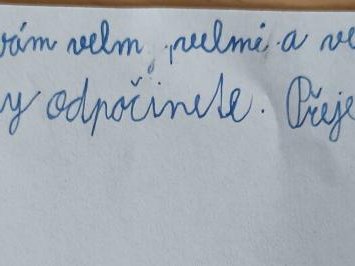 vám velm, velmi a ve
y odpočinete. Přeje